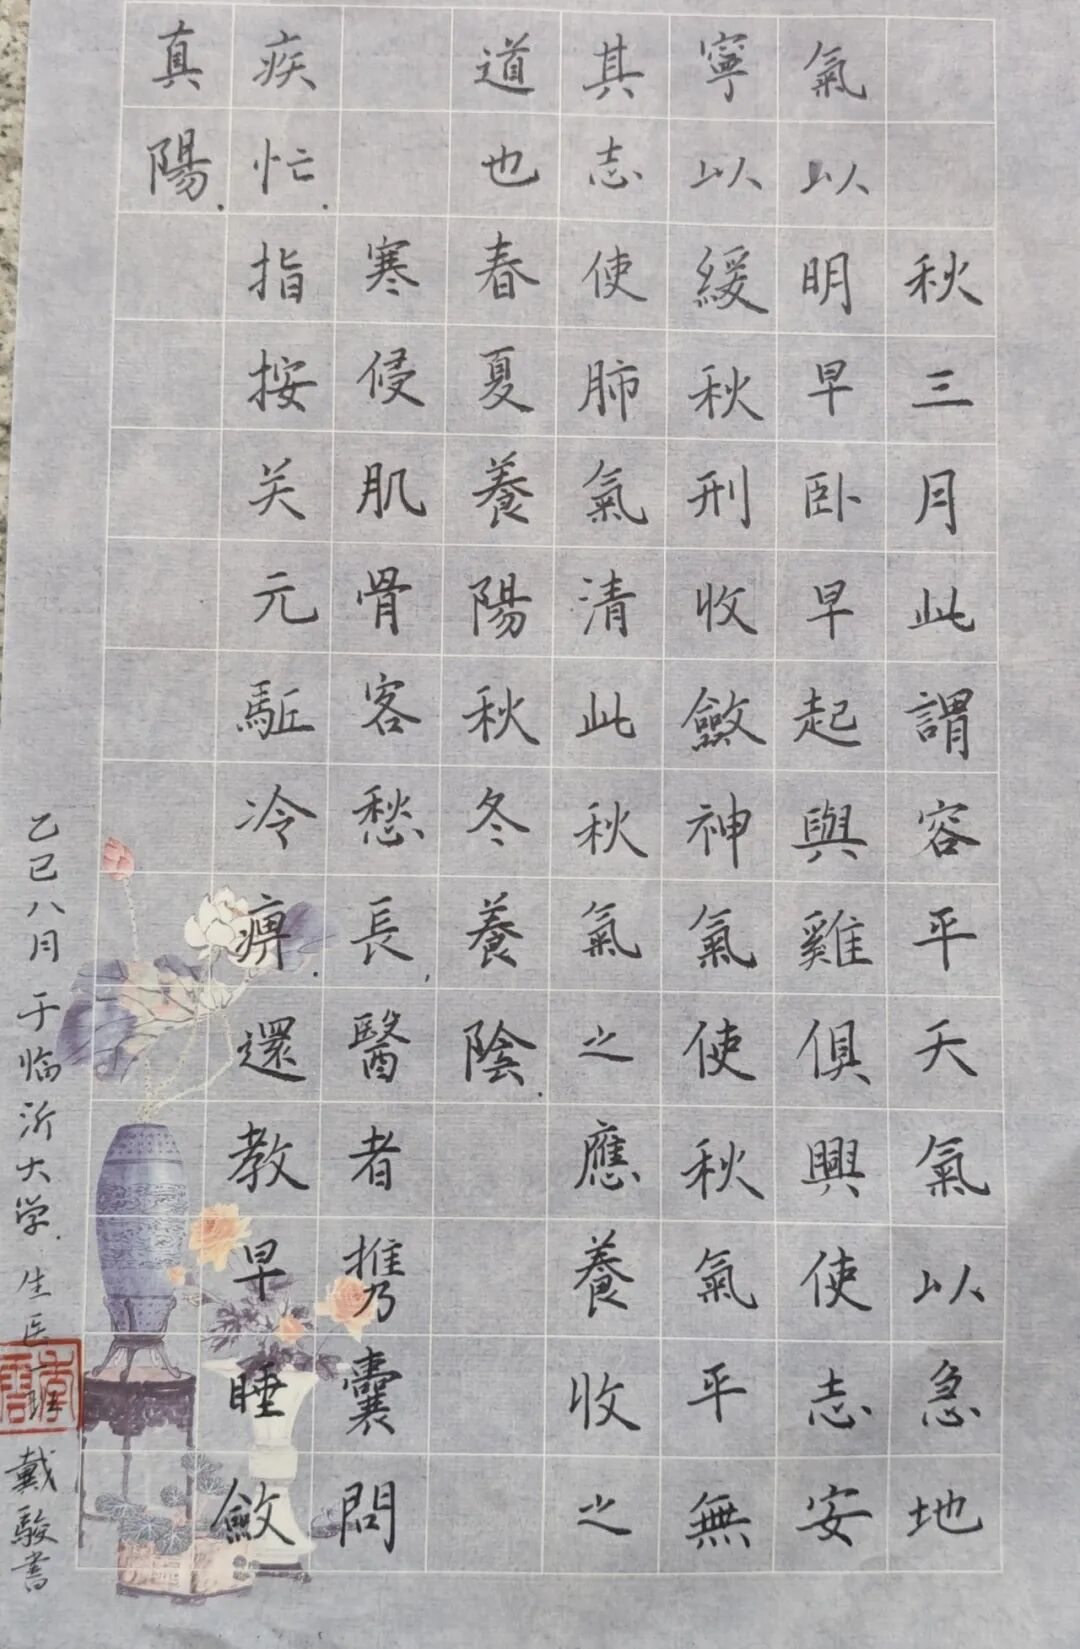 秋三月此謂容平天氣以急地
氣以明早卧早起與雞俱興使志安
寧以緩秋刑收斂神氣使秋氣平無
其志使肺氣清此秋氣之應養收之
道也春夏養陽秋冬養陰.
寒侵肌骨客愁長,醫者攜囊問
疾忙.指按关元駈冷痹.還教早睡斂
真陽.
乙巳八月于临沂大学.生医一班戴駿書